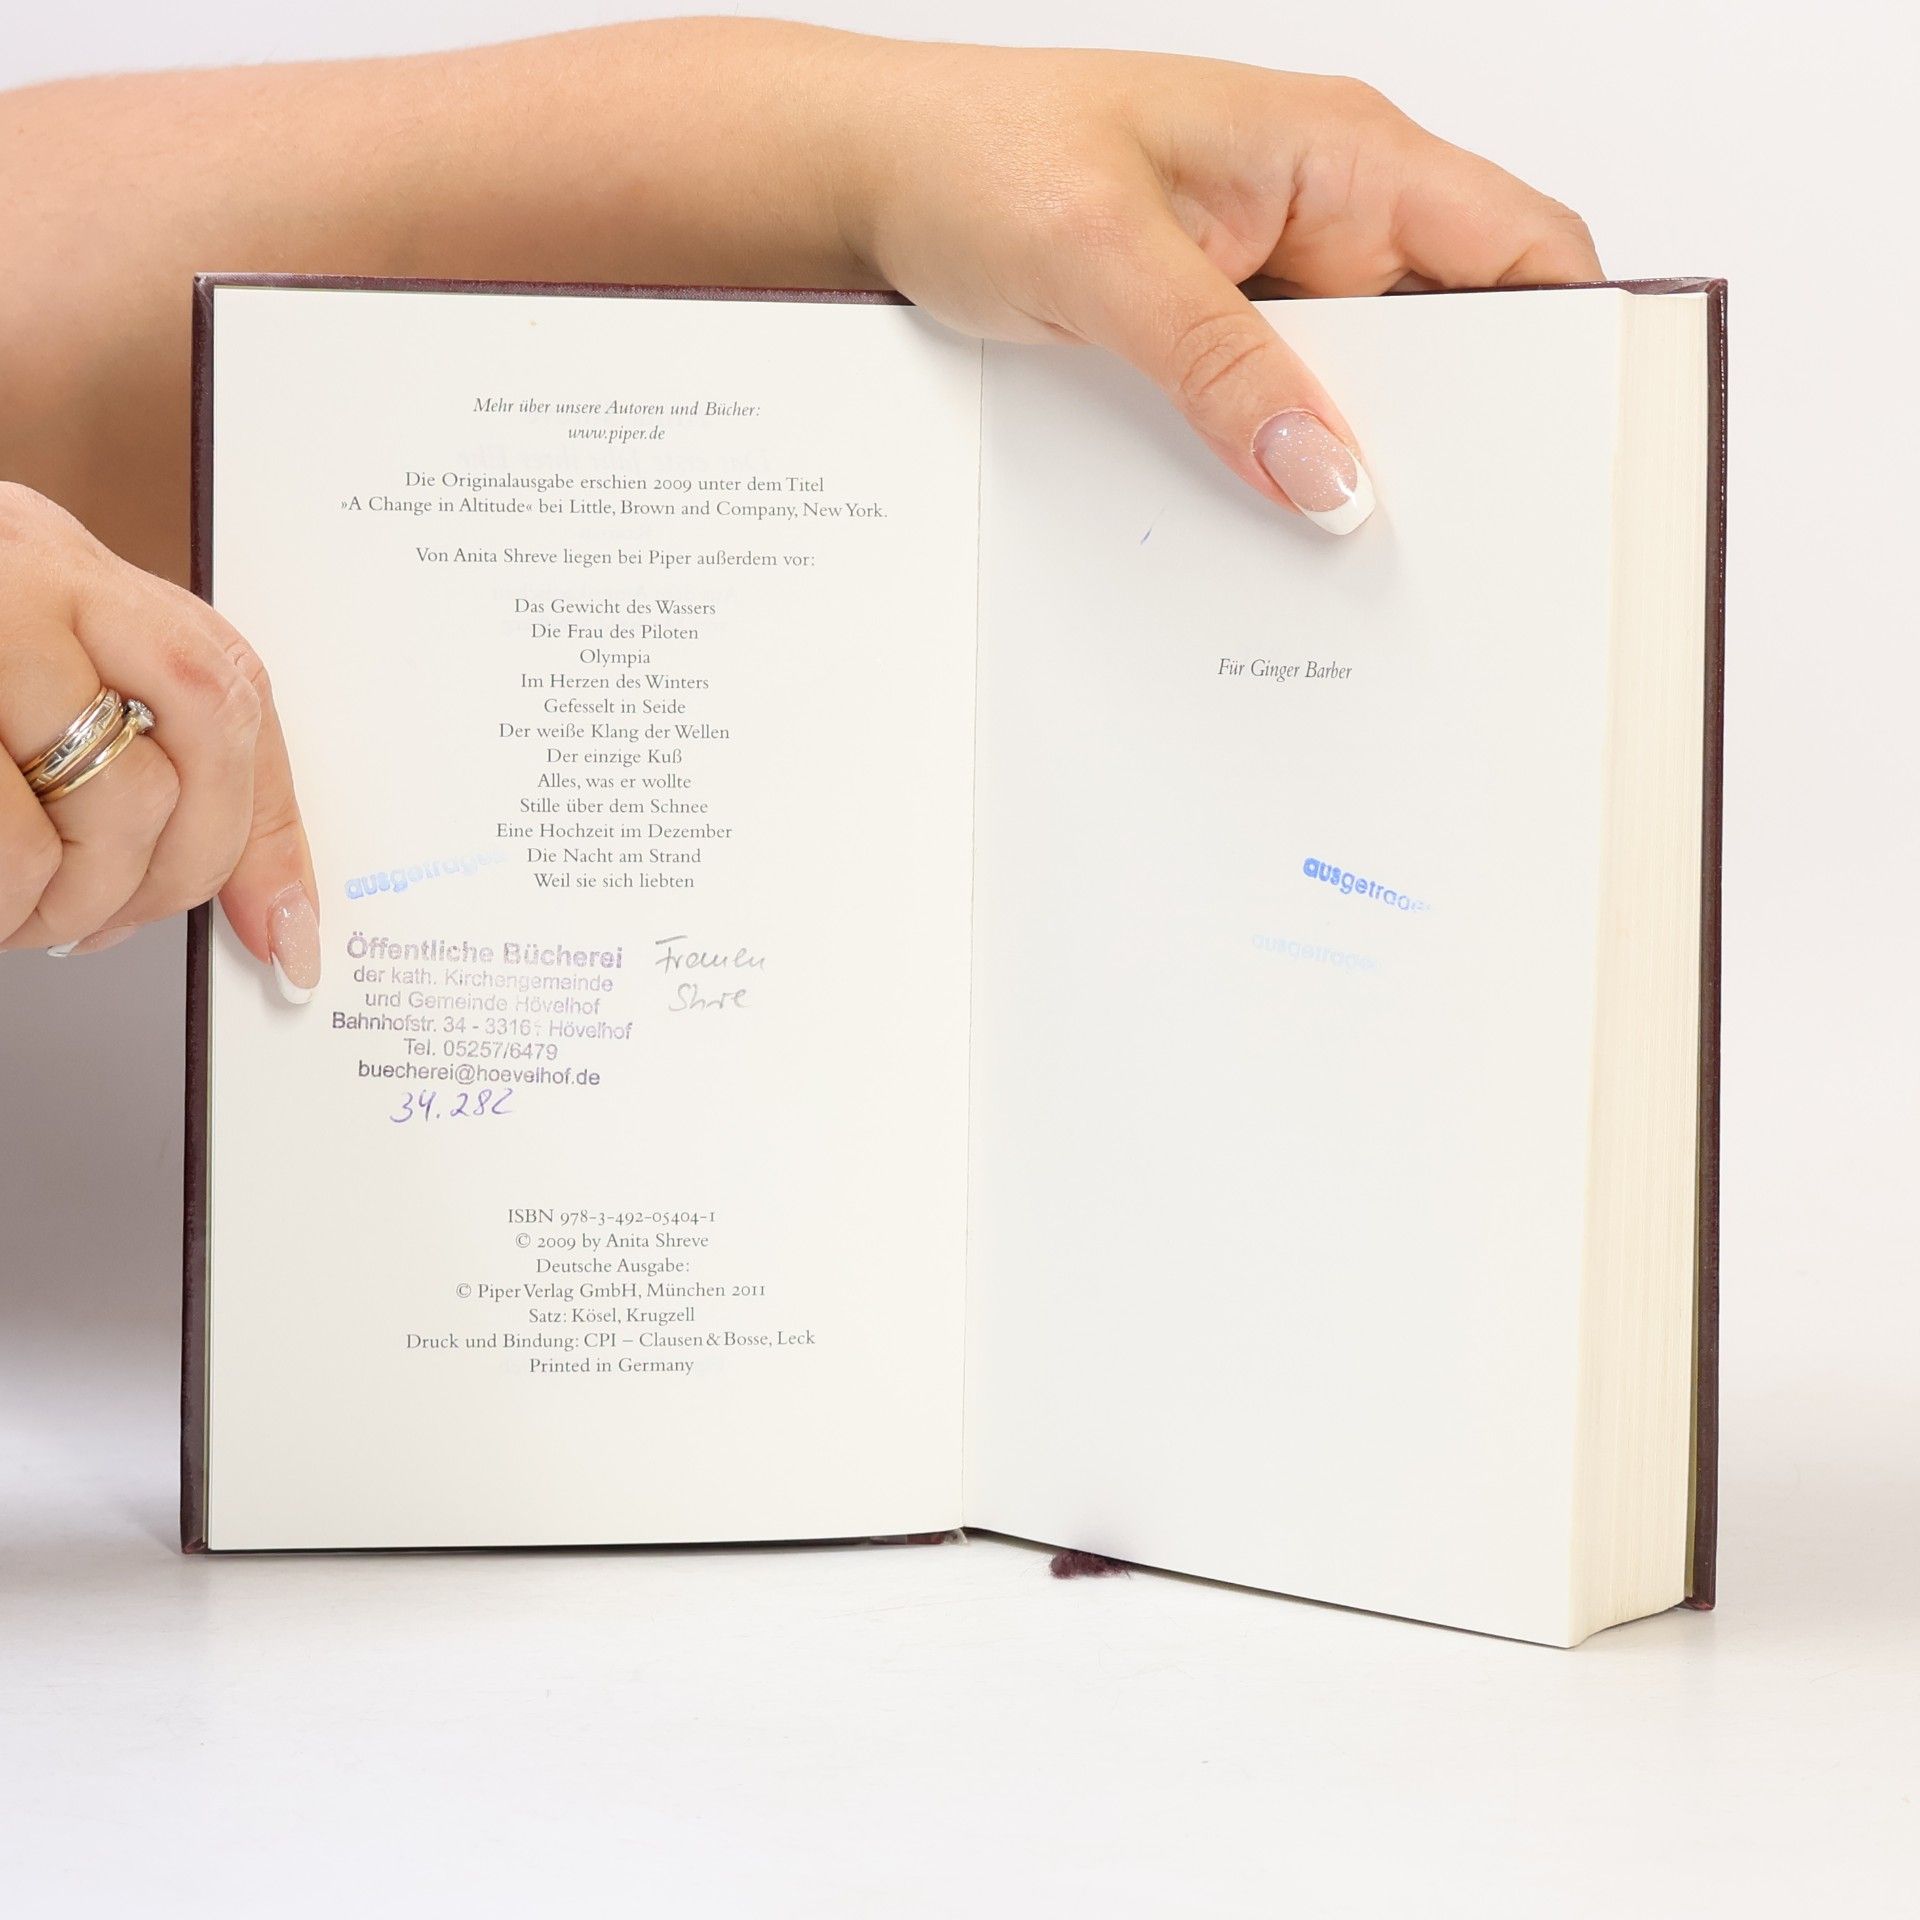 Mehr über unsere Autoren und Bücher:
www.piper.de
Die Originalausgabe erschien 2009 unter dem Titel
»A Change in Altitude« bei Little, Brown and Company, New York.
Von Anita Shreve liegen bei Piper außerdem vor:
Das Gewicht des Wassers
Die Frau des Piloten
Olympia
Im Herzen des Winters
Gefesselt in Seide
Der weiße Klang der Wellen
Der einzige Kuß
Alles, was er wollte
Stille über dem Schnee
Eine Hochzeit im Dezember
Die Nacht am Strand
Weil sie sich liebten
ausgetragen
Öffentliche Bücherei
der kath. Kirchengemeinde
und Gemeinde Hövelhof
Bahnhofstr. 34 - 3316 Hövelhof
Tel. 05257/6479
buecherei@hoevelhof.de
34.282
Frauen
Shre
ISBN 978-3-492-05404-1
© 2009 by Anita Shreve
Deutsche Ausgabe:
© Piper Verlag GmbH, München 2011
Satz: Kösel, Krugzell
Druck und Bindung: CPI – Clausen & Bosse, Leck
Printed in Germany
Für Ginger Barber
ausgetragen
ausgetragen